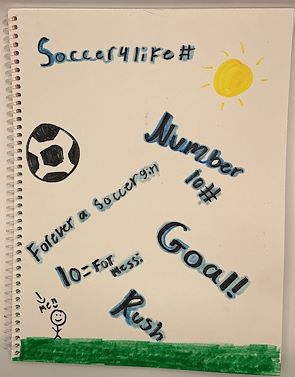 Soccer4life#
Number
10#
Forever a Soccer girl
10=For messi
Goal!!
Rush
me